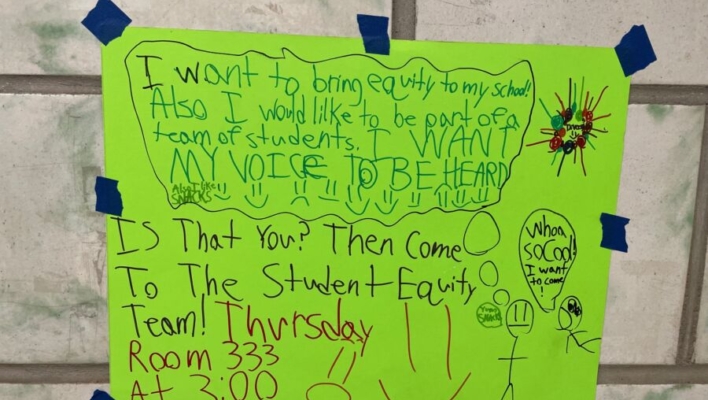 I want to bring equity to my school!
Also I would lilke to be part of a
team of students. I WANT
MY VOICE TO BE HEARD
Also I like
SNACKS
IS That You? Then Come
To The Student Equity
Team! Thursday
Room 333
At 3:00
Whoa
SO Cool!
I want
to come
!